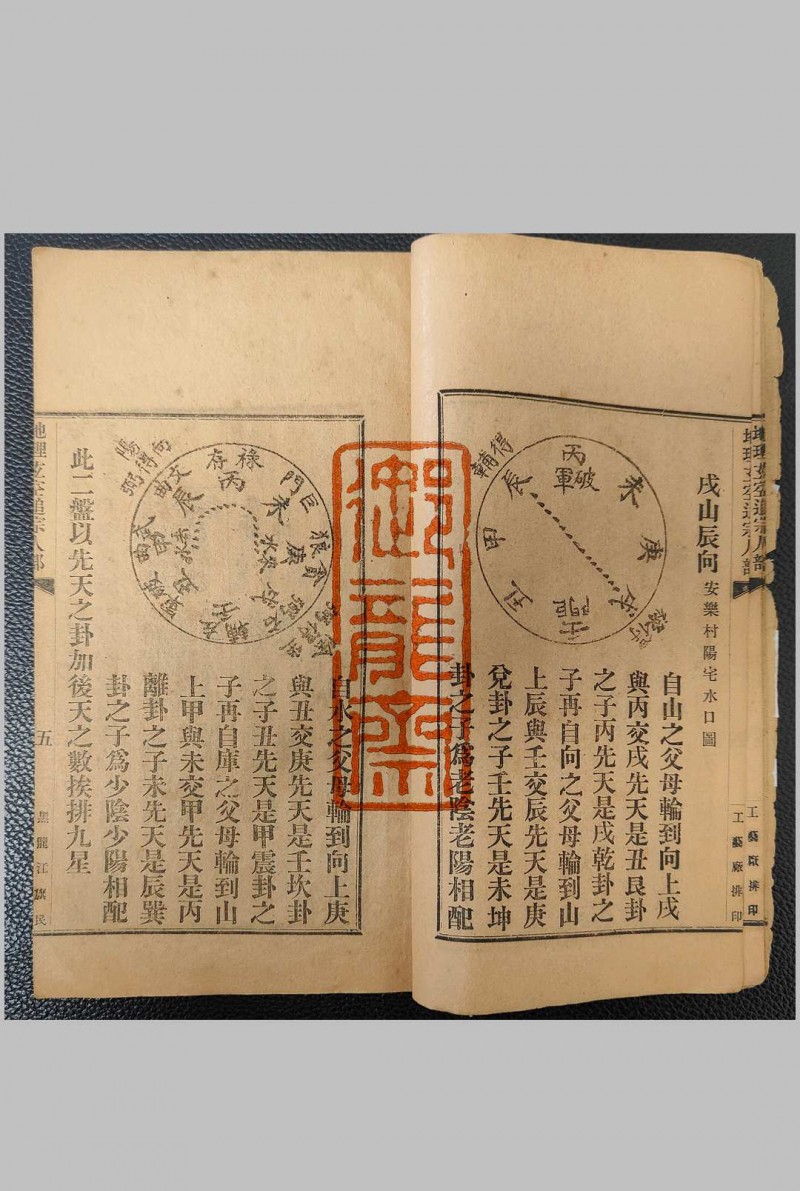 地理玄空通宗人部
工藝廠排印
戌山辰向
安樂村陽宅水口圖
丙
破軍
未
庚
戌
壬
巨門
丑
甲
辰
得輔
自山之父母輪到向上戌
與丙交戌先天是丑艮卦
之子丙先天是戌乾卦之
子再自向之父母輪到山
上辰與壬交辰先天是庚
兌卦之子壬先天是未坤
卦之子爲老陰老陽相配
祿存
丙
巨門
未
庚
貪狼
戌
壬
輔
甲
辰
文曲
向得弼
陽
自水之父母輪到向上庚
與丑交庚先天是壬坎卦
之子丑先天是甲震卦之
子再自庫之父母輪到山
上甲與未交甲先天是丙
離卦之子未先天是辰巽
卦之子爲少陰少陽相配
此二盤以先天之卦加後天之數挨排九星
地理玄空通宗人部
五
黑龍江旗民
工藝廠排印
御龍齋